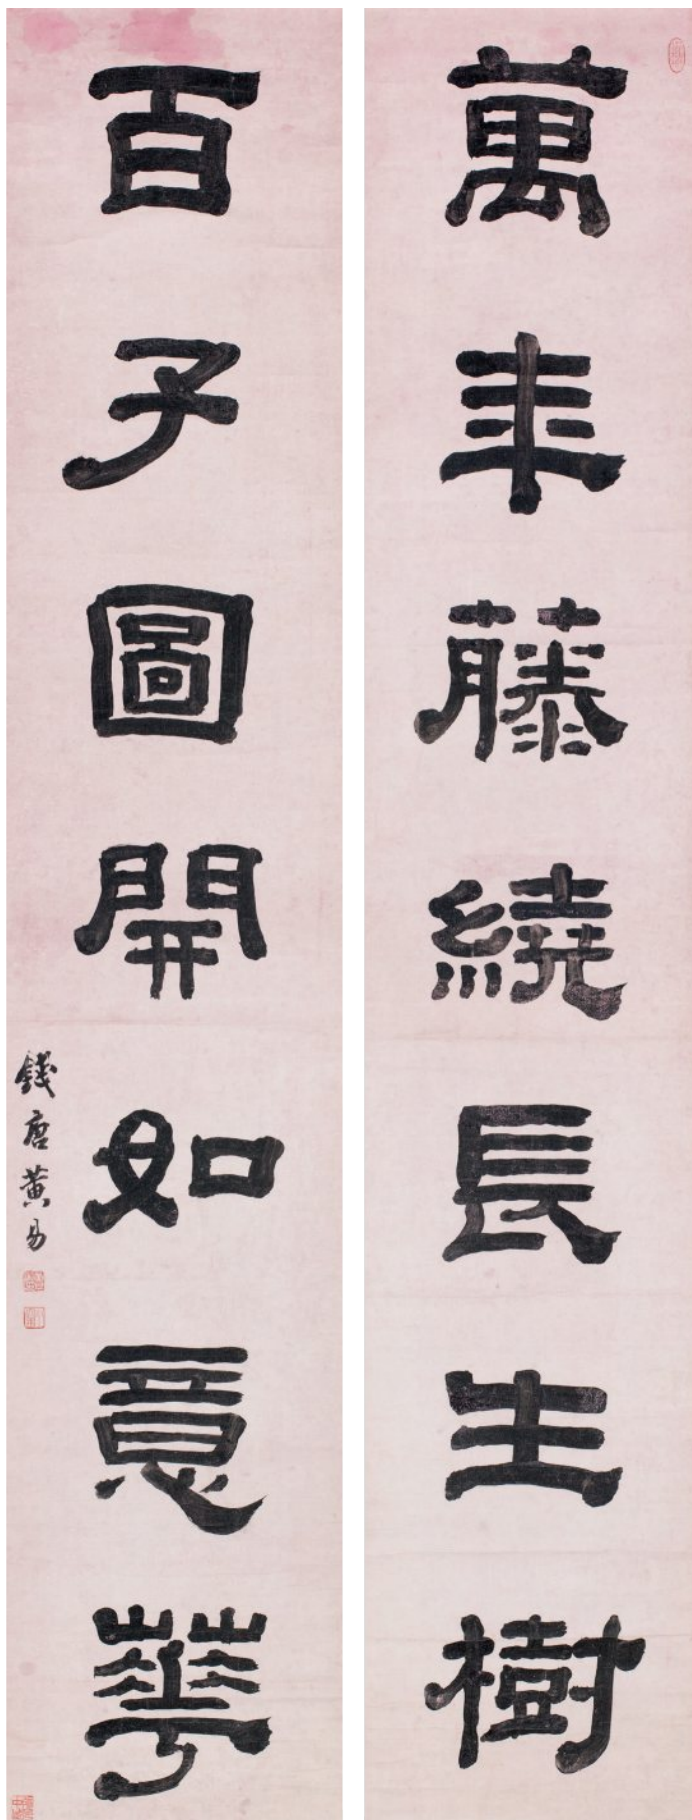 萬年藤繞長生樹
百子圖開如意華
錢唐黃易